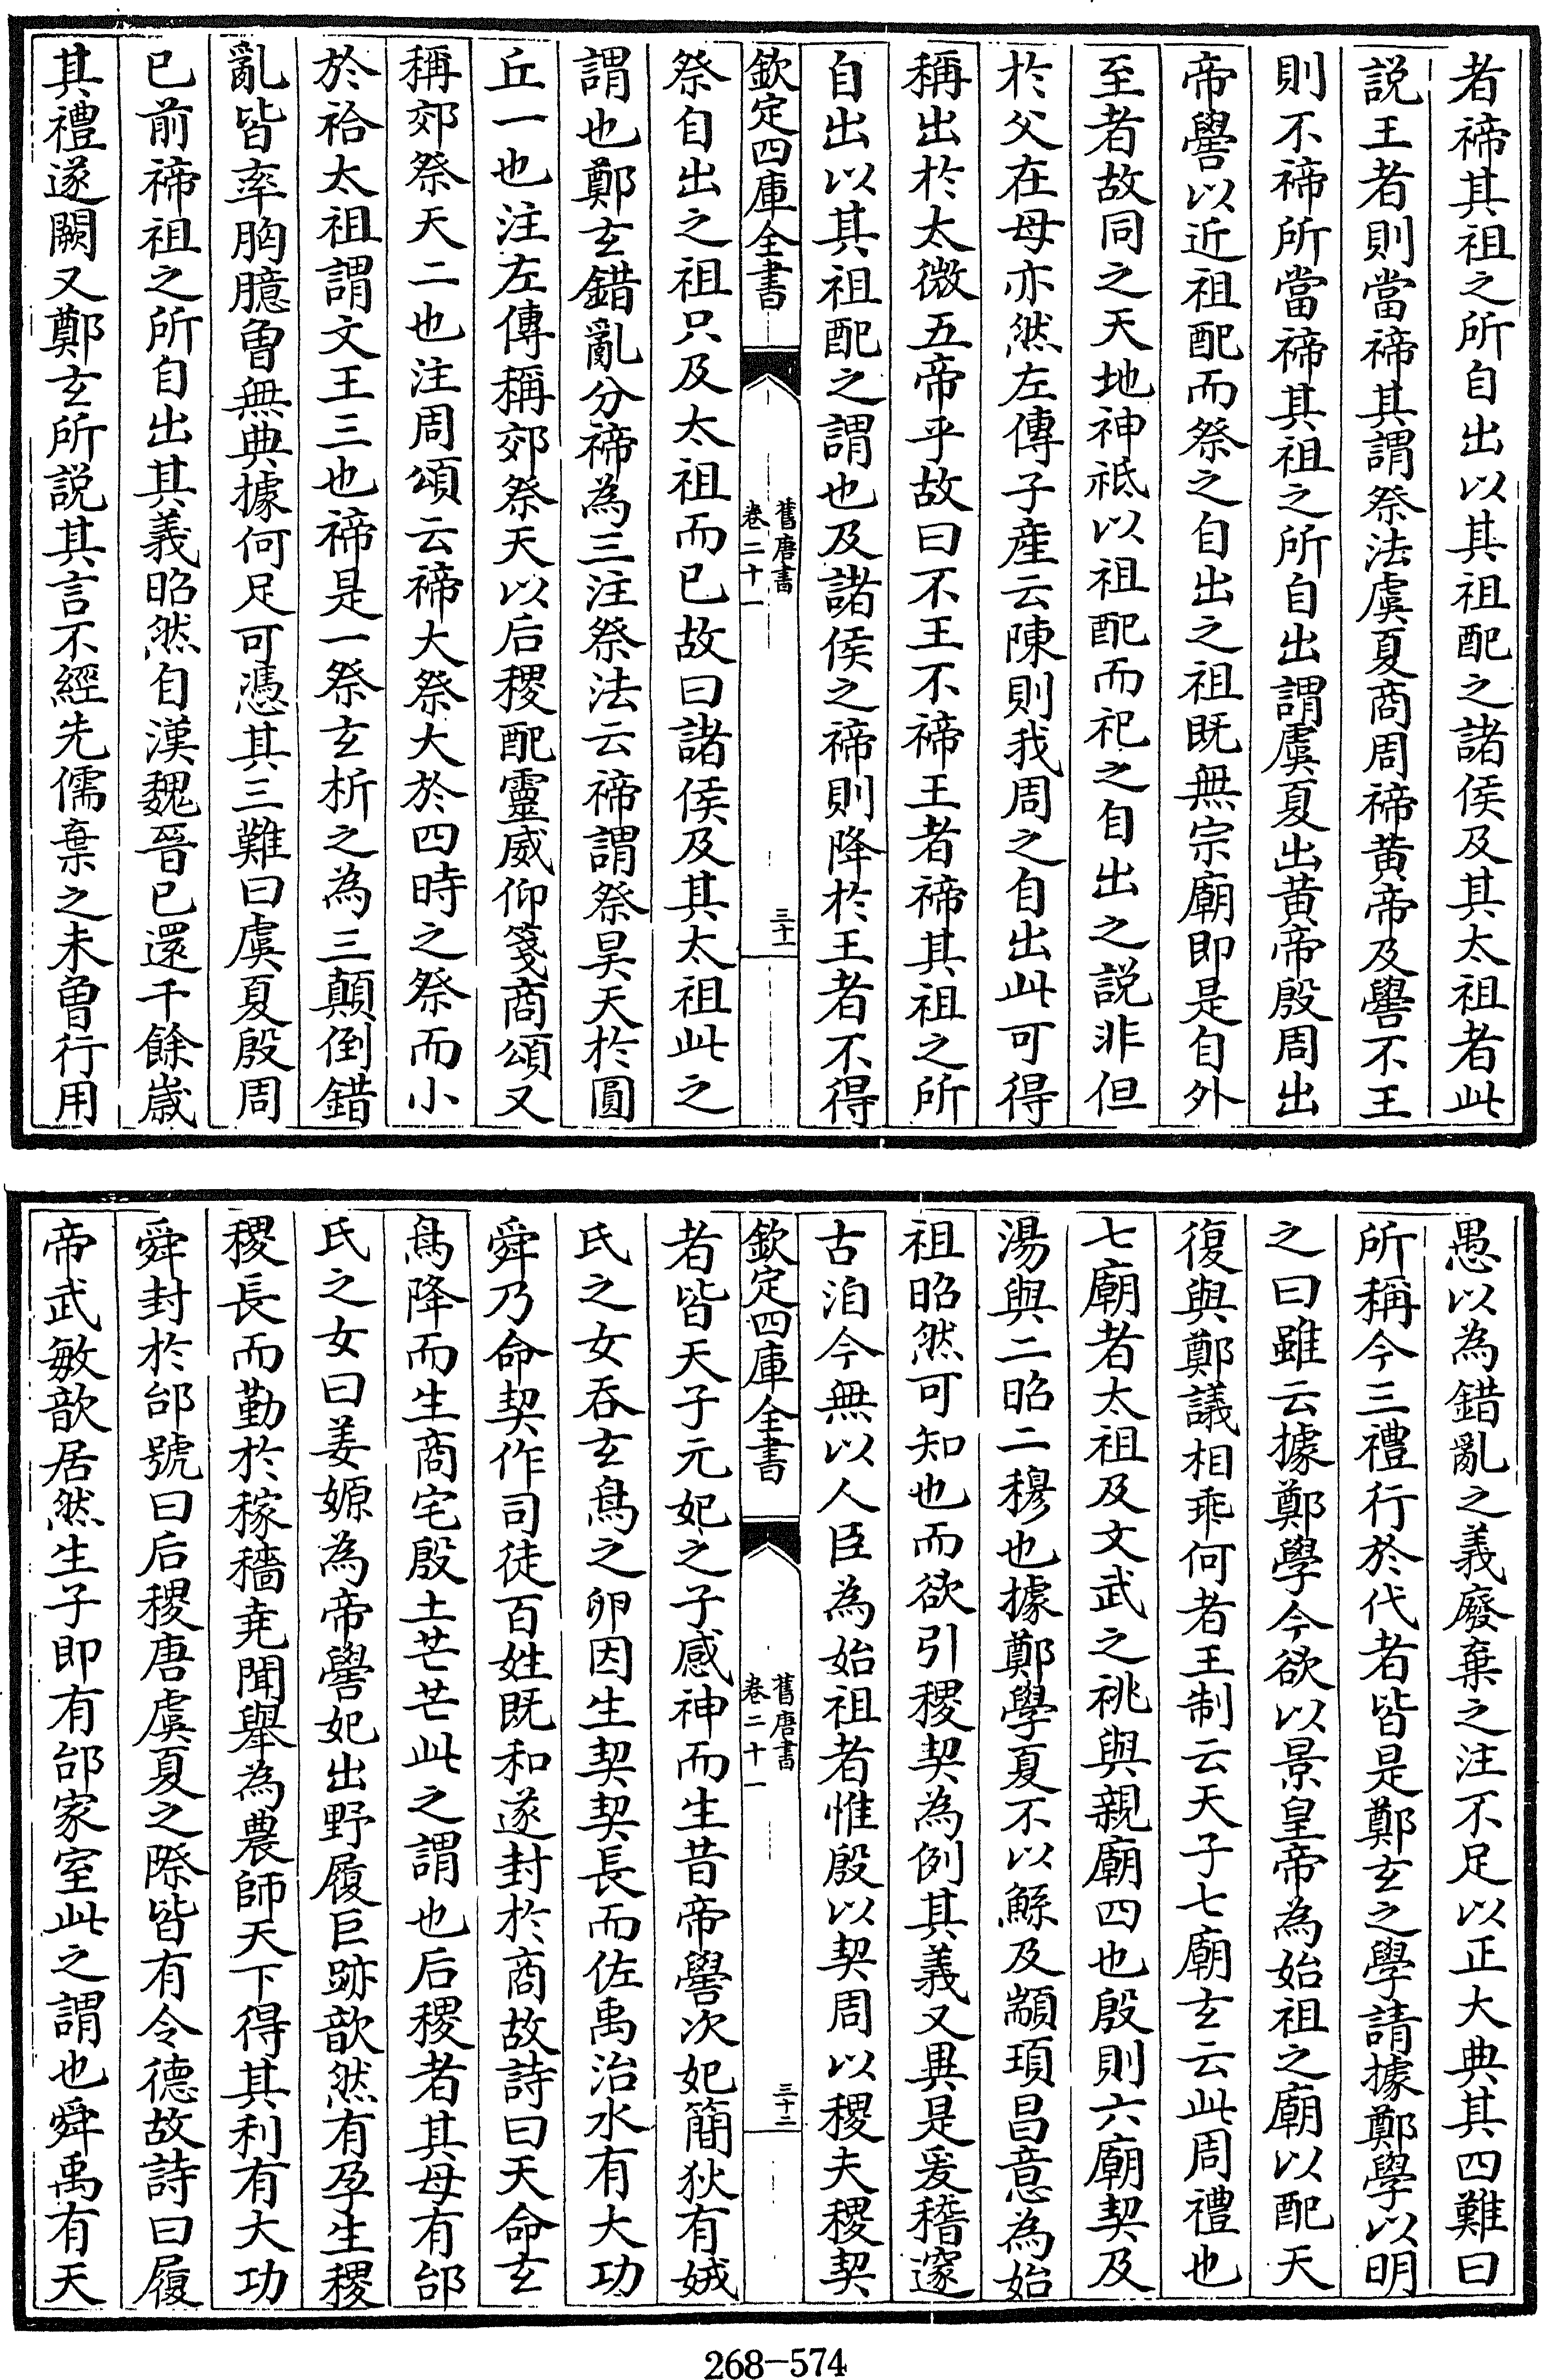 者禘其祖之所自出以其祖配之諸侯及其太祖者此
説王者則當禘其謂祭法虞夏商周禘黄帝及嚳不王
則不禘所當禘其祖之所自出謂虞夏出黄帝殷周出
帝嚳以近祖配而祭之自出之祖既無宗廟即是自外
至者故同之天地神祗以祖配而祀之自出之説非但
於父在母亦然左傳子産云陳則我周之自出此可得
稱出於太微五帝乎故曰不王不禘王者禘其祖之所
自出以其祖配之謂也及諸侯之禘則降於王者不得
欽定四庫全書
舊唐書
卷二十一
三十一
祭自出之祖只及太祖而已故曰諸侯及其太祖此之
謂也鄭玄錯亂分禘為三注祭法云禘謂祭昊天於圓
丘一也注左傳稱郊祭天以后稷配靈威仰箋商頌又
稱郊祭天二也注周頌云禘大祭大於四時之祭而小
於祫太祖謂文王三也禘是一祭玄析之為三顛倒錯
亂皆率胸臆曾無典據何足可憑其三難曰虞夏殷周
已前禘祖之所自出其義昭然自漢魏晉已還千餘嵗
其禮遂闕又鄭玄所説其言不經先儒棄之未曾行用
愚以為錯亂之義廢棄之注不足以正大典其四難曰
所稱今三禮行於代者皆是鄭玄之學請據鄭學以明
之曰雖云據鄭學今欲以景皇帝為始祖之廟以配天
復與鄭議相乖何者王制云天子七廟玄云此周禮也
七廟者太祖及文武之祧與親廟四也殷則六廟契及
湯與二昭二穆也據鄭學夏不以鯀及顓頊昌意為始
祖昭然可知也而欲引稷契為例其義又異是爰稽邃
古洎今無以人臣為始祖者惟殷以契周以稷夫稷契
欽定四庫全書
舊唐書
卷二十一
三十二
者皆天子元妃之子感神而生昔帝嚳次妃簡狄有娀
氏之女吞玄鳥之卵因生契契長而佐禹治水有大功
舜乃命契作司徒百姓既和遂封於商故詩曰天命玄
鳥降而生商宅殷土芒芒此之謂也后稷者其母有邰
氏之女曰姜嫄為帝嚳妃出野履巨跡歆然有孕生稷
稷長而勤於稼穡堯聞舉為農師天下得其利有大功
舜封於邰號曰后稷唐虞夏之際皆有令德故詩曰履
帝武敏歆居然生子即有邰家室此之謂也舜禹有天
268-574